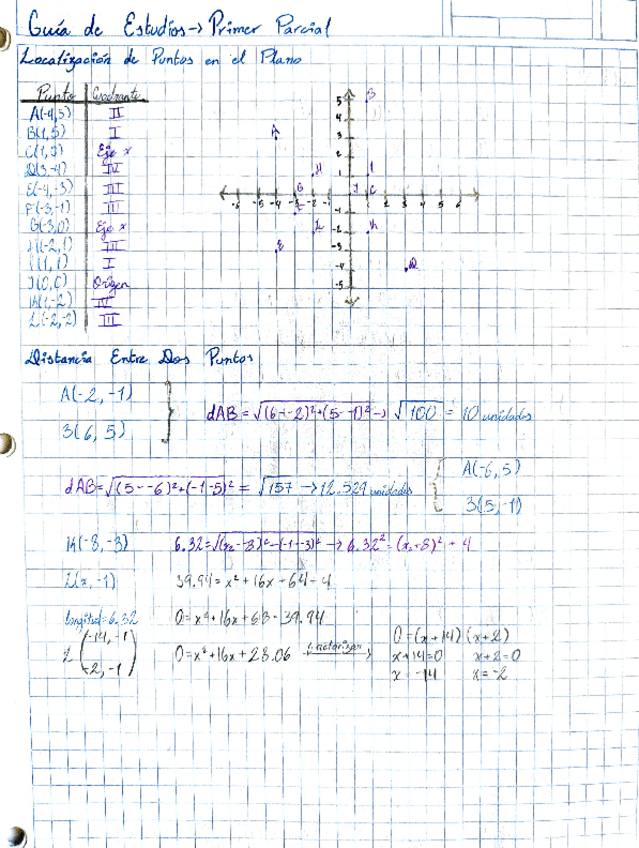 Guía de Estudios → Primer Parcial
Localización de Puntos en el Plano
Punto Cuadrante
A(-4,5) II
B(1,5) I
C(1,0) Eje x
D(3,-4) IV
E(-4,-3) III
F(-3,-1) III
G(-3,0) Eje x
H(-2,1) III
I(1,1) I
J(0,0) Origen
K(1,-2) IV
L(-2,-2) III
Distancia Entre Dos Puntos
A(-2, -1)
B(6, 5)
dAB = √(6--2)²+(5--1)² → √100 = 10 unidades
A(-6,5)
B(5,-1)
dAB=√(5--6)²+(-1-5)² = √157 → 12.529 unidades
K(-8,-3) 6.32=√(x₂--8)²-(-1--3)² → 6.32²=(x₂+8)²+4
L(x,-1) 39.94=x²+16x+64-4
longitud=6.32 0=x²+16x+68-39.94
L (-14,-1
-2,-1) 0=x²+16x+28.06 factorizar → 0=(x+14)(x+2)
x+14=0 x+2=0
x=-14 x=-2